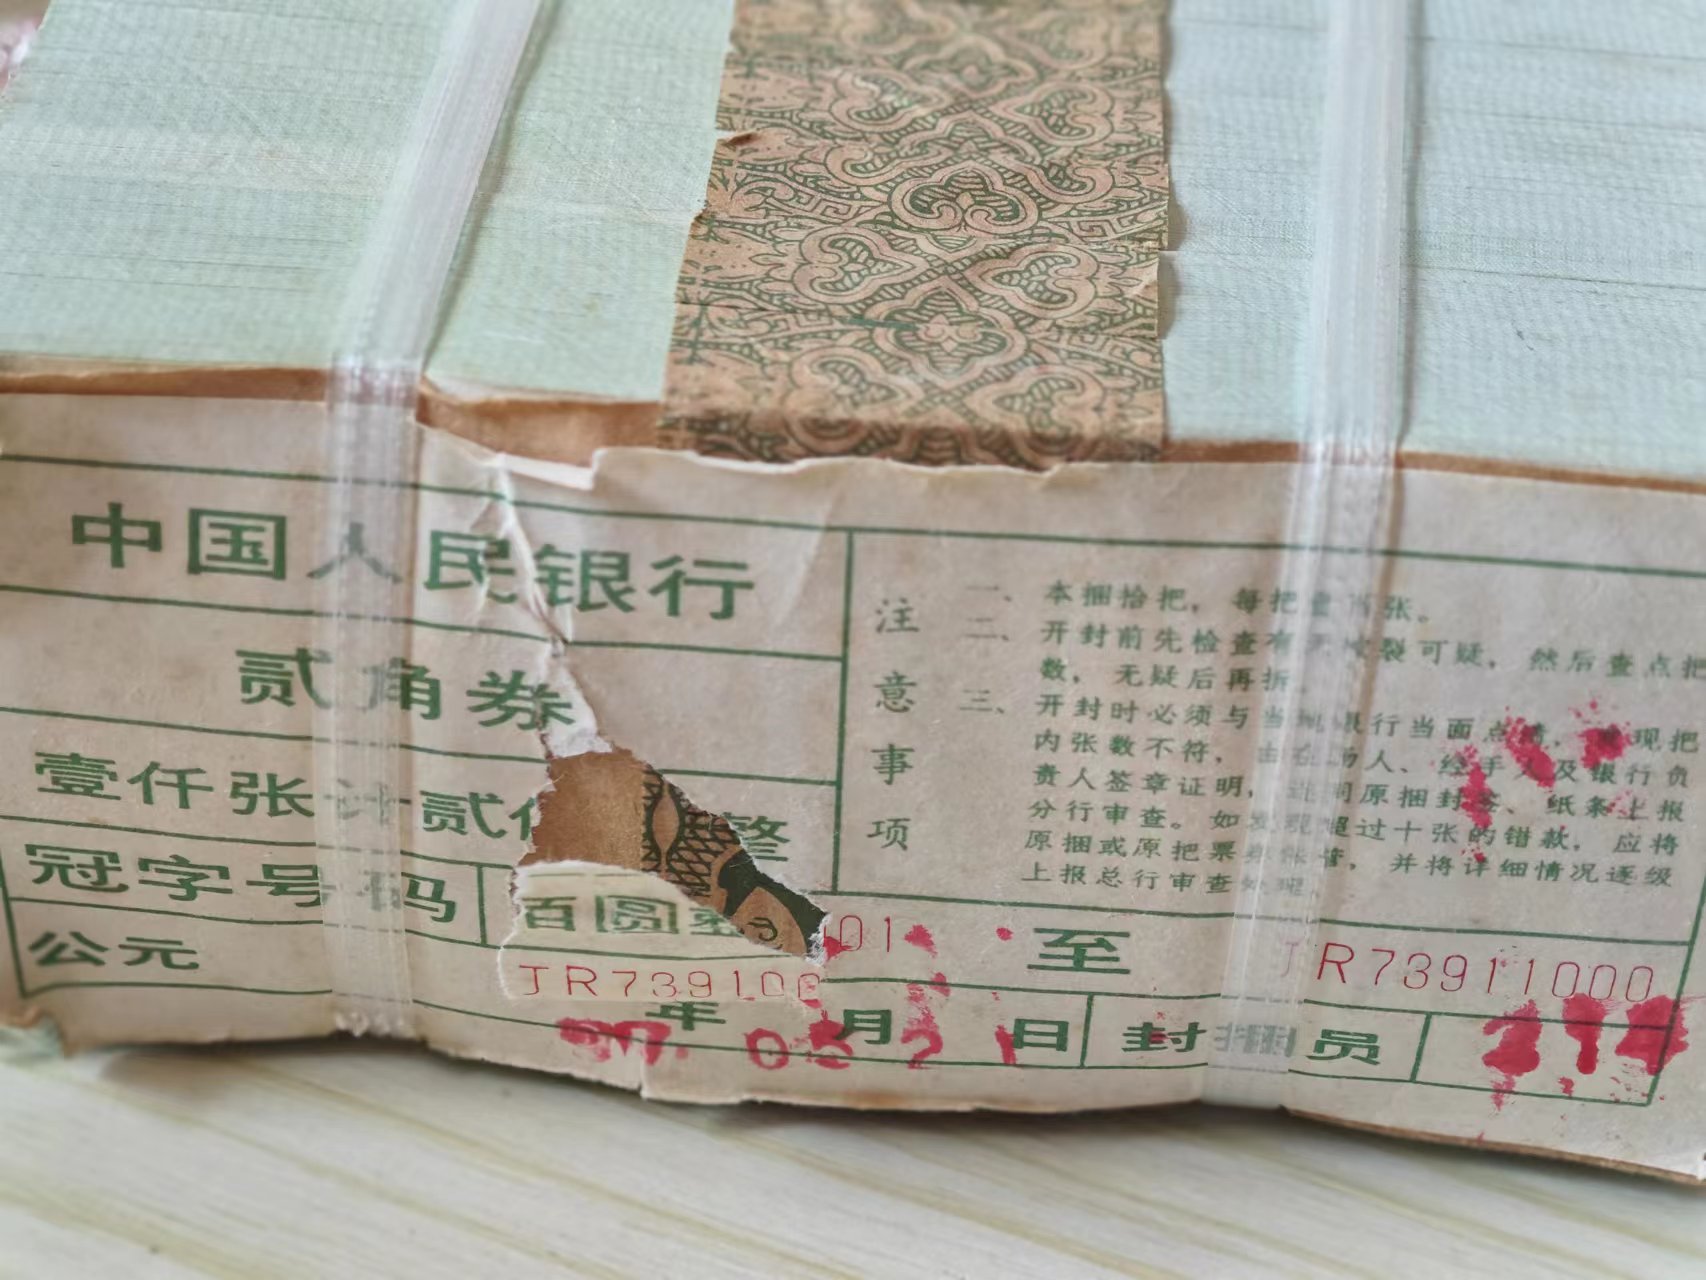 中国人民银行
贰角券
壹仟张计贰佰圆整
冠字号码
JR7391000
01
至
JR73911000
公元
97
年
05
月
21
日
封捆员
314
注意事项
一、本捆拾把，每把壹百张。
二、开封前先检查有无破裂可疑，然后查点把
数，无疑后再拆。
三、开封时必须与当地银行当面点清，发现把
内张数不符，由在场人、经手人及银行负
责人签章证明，连同原捆封签、纸条上报
分行审查。如发现超过十张的错款，应将
原捆或原把票券保管，并将详细情况逐级
上报总行审查处理。